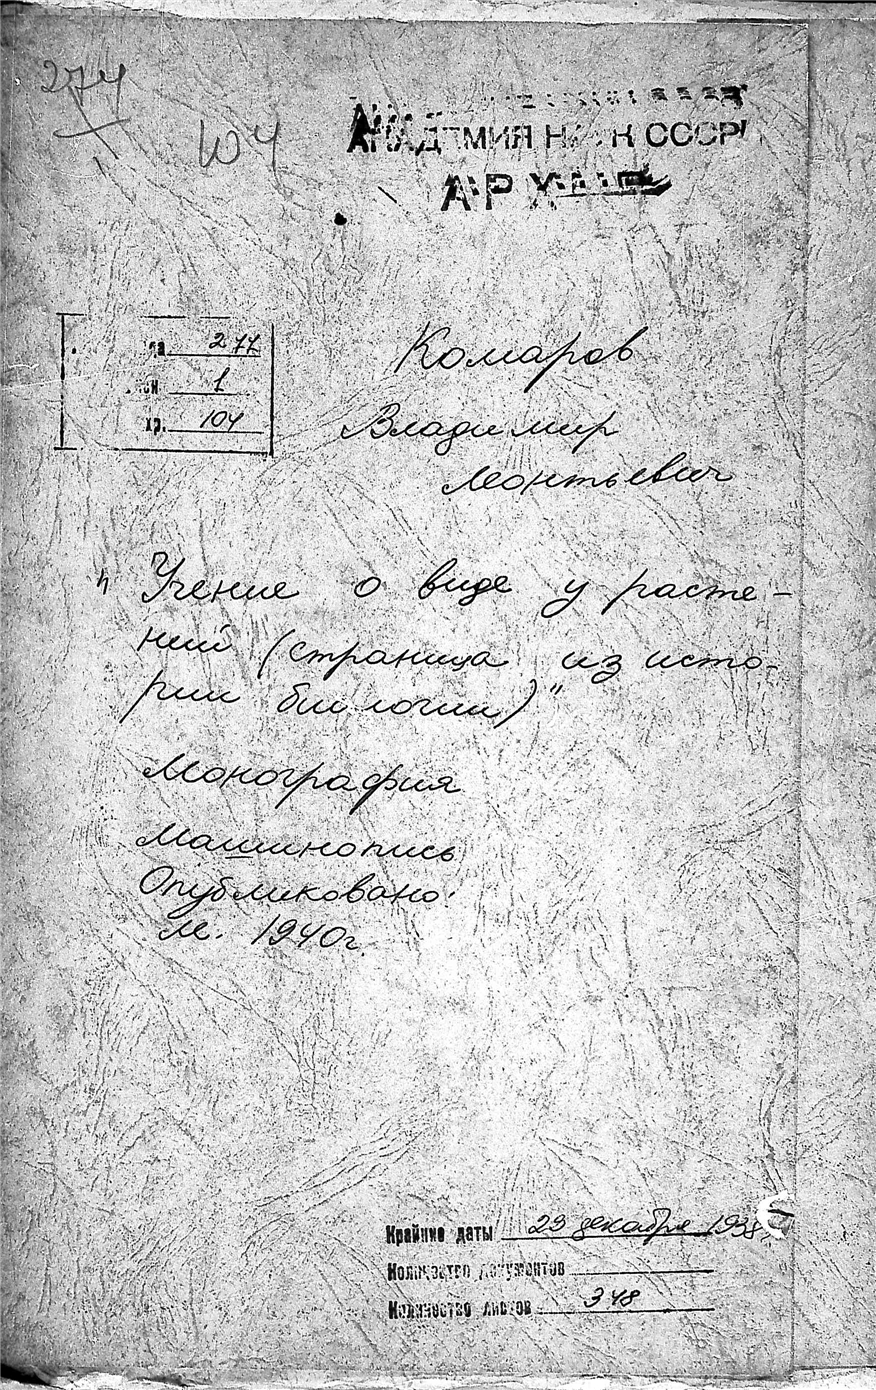 277
1
104
АКАДЕМИЯ НАУК СССР
АРХИВ
277
1
хр. 104
Комаров
Владимир
Леонтьевич
"Учение о виде у расте-
ний (страница из исто-
рии биологии)"
Монография
Машинопись
Опубликовано:
М. 1940г.
Крайние даты 29 декабря 1938г.
Количество документов
Количество листов 348